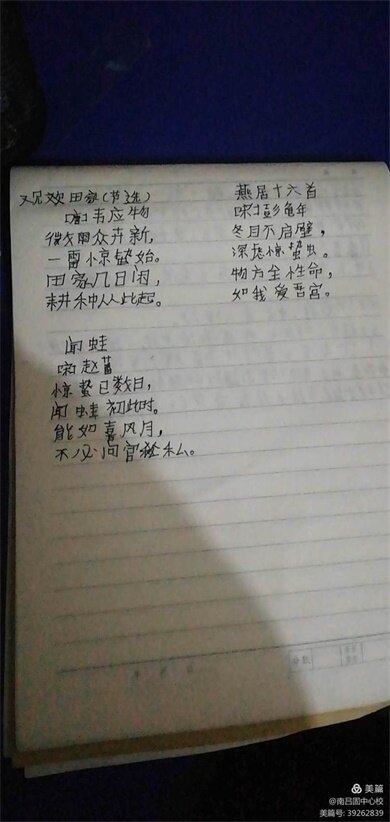 观田家(节选)
唐韦应物
微雨众卉新,
一雷惊蛰始。
田家几日闲,
耕种从此起。
燕居十六首
宋彭龟年
冬日不启壁,
深恐惊蛰虫。
物方全性命,
知我爱吾宫。
闻蛙
宋赵蕃
惊蛰已数日,
闻蛙初此时。
能如喜风月,
不必问官私。
美篇
@南吕固中心校
美篇号: 39262839